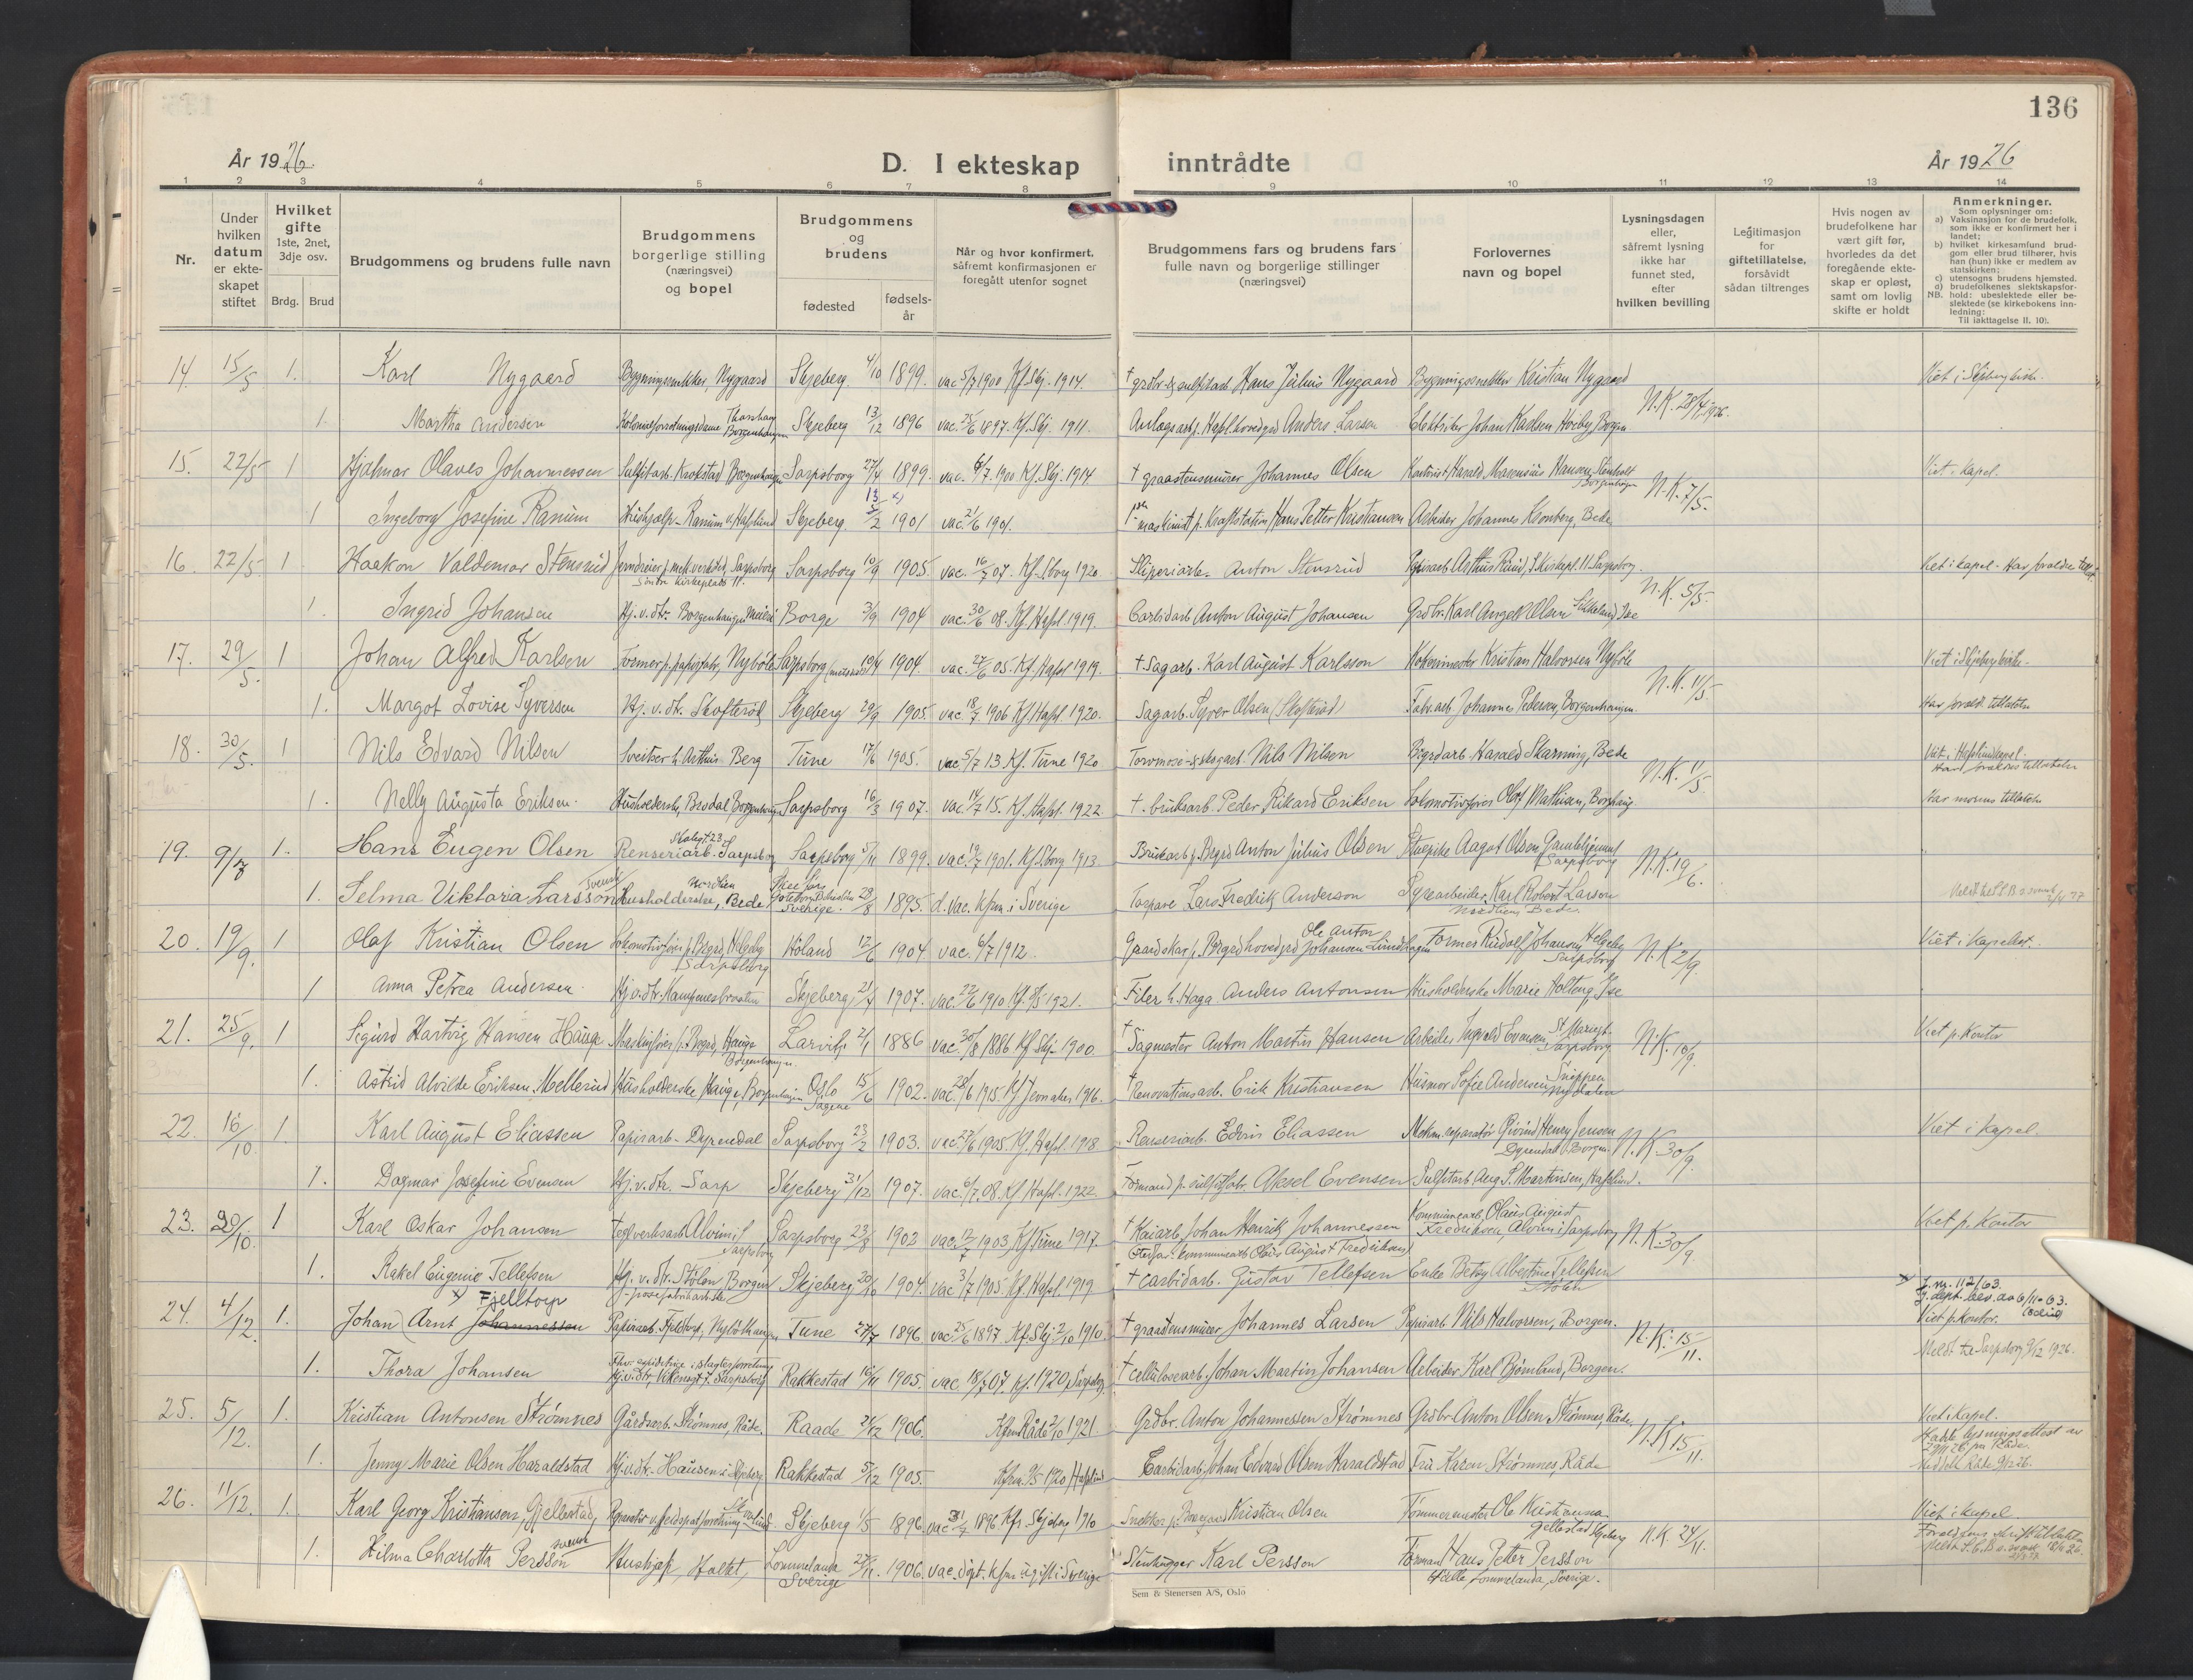 136
År 1926.
D. I ekteskap inntrådte
År 1926
1 2 3 4 5 6 7 8 9 10 11 12 13 14
Nr.
Under hvilken datum er ekteskapet stiftet
Hvilket gifte 1ste, 2net, 3dje osv.
Brdg. Brud
Brudgommens og brudens fulle navn
Brudgommens borgerlige stilling (næringsvei) og bopel
Brudgommens og brudens
fødested
fødselsår
Når og hvor konfirmert, såfremt konfirmasjonen er foregått utenfor sognet
Brudgommens fars og brudens fars fulle navn og borgerlige stillinger (næringsvei)
Forlovernes navn og bopel
Lysningsdagen eller, såfremt lysning ikke har funnet sted, efter hvilken bevilling
Legitimasjon for giftetillatelse, forsåvidt sådan tiltrenges
Hvis nogen av brudefolkene har vært gift før, hvorledes da det foregående ekteskap er opløst, samt om lovlig skifte er holdt
Anmerkninger.
Som oplysninger om:
a) Vaksinasjon for de brudefolk, som ikke er konfirmert her i landet;
b) hvilket kirkesamfund brudgom eller brud tilhører, hvis han (hun) ikke er medlem av statskirken;
c) utensogns brudens hjemsted.
d) brudefolkenes slektskapsforhold: ubeslektede eller beslektede (se kirkebokens innledning:
NB.
Til iakttagelse II. 10).
14. 15/5 1. Karl Nygaard Bygningssnekker, Nygaard Skjeberg 4/10 1899. vac 5/7 1900 Kf. Skj. 1914. † grdbr. & sulfitarb. Hans Julius Nygaard Bygningssnekker Kristian Nygaard N.K. 28/4 1926. Viet i Skjeberg kirke.
1. Martha Andersen Skjeberg 13/12 1896 vac. 25/6 1897. Kf. Skj. 1911. Anlægsarb. Hafsl. hovedgd Anders Larsen Elektriker Johan Karlsen Høiby, Borgen
15. 22/5 1 Hjalmar Olaves Johannessen Sulfitarb. Krokstad Borgenhaugen Sarpsborg 27/4 1899. vac. 4/7 1900 Kf. Skj. 1914 † graastensmurer Johannes Olsen Kontorist Harald Marensius Hansen, Stenholt Borgenhaugen N.K. 7/5. Viet i Kapel.
1 Ingeborg Josefine Ranum Hushjælp - Ranum v. Hafslund Skjeberg 1901 vac. 21/6 1901. maskinist p. Kraftstation Hans Petter Kristiansen Arbeider Johannes Kronberg, Bede
16. 22/5 1 Haakon Valdemar Stensrud Jerndreier p. mek. verksted, Sarpsborg Søndre Kirkeplads 11. Sarpsborg 10/9 1905. vac. 16/7 07. Kf. Sborg 1920 Sliperiarb. Anton Stensrud Papirarb. Arthur Ruud, S. Kirkepl. 11. Sarpsborg. N.K. 5/5. Viet i kapel. Har foraldre till.
1. Ingrid Johansen Hj. v. dtr. Borgenhaugen Meieri Borge 3/9 1904 vac. 30/6 08. Kf. Hafsl. 1919. Carbidarb. Anton August Johansen Grdbr. Karl Angell Olsen
17. 29/5. 1 Johan Alfred Karlsen Former p. papirfabr., Nybøle Sarpsborg 10/4 1904. vac. 27/6 05. Kf. Hafsl. 1919. † Sagarb. Karl August Karlsson Kokerimester Kristian Halvorsen Nybøle N.K. 11/5 Viet i Skjeberg kirke.
1. Margot Lovise Syversen Hj. v. dtr. Skofterød Skjeberg 29/9 1905 vac. 18/7 1906 Kf. Hafsl. 1920. Sagarb. Syver Olsen (Skofterød) Fabr. arb. Johannes Pedersen, Borgenhaugen. Har forald. tillatelse
18. 30/5. 1 Nils Edvard Nilsen Sveitser h. Arthur Berg Tune 17/6 1905. vac 5/7 13. Kf. Tune 1920 Torvmose- & skogarb. Nils Nilsen Bgrdarb. Harald Skarning, Bede N.K. 11/5. Viet i Hafslund kapel. Har foreldres tillatelse
1. Nelly Augusta Eriksen. Husholderske, Brodal, Borgenhaugen Sarpsborg 16/3 1907. vac. 14/7 15. Kf. Hafsl. 1922 †. bruksarb. Peder Rikard Eriksen Lokomotivfører Olaf Mathisen, Borghaug. Har morens tillatelse
19. 9/7 1. Hans Eugen Olsen Renseriarb. Sarpsborg Sarpsborg 5/11 1899. vac. 19/7 1901. Kf. Sborg 1913. Bruksarb. p. Bgrd. Anton Julius Olsen Stuepike Aagot Olsen, Gamlehjemmet Sarpsborg N.K. 19/6.
1. Selma Viktoria Larsson Svensk Husholderske, Nordlien Bede Sverige 28/8 1895. d. vac. kfm. i Sverige Torpare Lars Fredrik Anderson Syrearbeider Karl Robert Larson Nordlien Bede
20. 19/9. 1 Olaf Kristian Olsen Lokomotivfører p. Bgrd, Helgeby Sarpsborg Høland 12/6 1904 vac. 6/7 1912. Gaardskar p. Bgrd hovedgrd Ole Anton Johansen Lundhagen Former Rudolf Johansen, Helgeby Sarpsborg N.K. 2/9. Viet i Kapellet.
1 Anna Petrea Andersen. Hj. v. dtr. Hansemesbraaten Skjeberg 21/7 1907. vac. 22/6 1910 Kf. 9/5 1921. Filer h. Haga Anders Antonsen Husholderske Marie Holteng, Ise
21. 25/9. 1 Sigurd Hartvig Hansen Hauge Maskinfører p. Bgrd, Hauge Borgenhaugen. Larvik 2/1 1886 vac. 30/8 1886 Kf. Skj. 1900 † Sagmester Anton Martin Hansen Arbeider Ingvald Evensen, St. Mariegt. Sarpsborg N.K. 10/9. Viet p. Kontor
1. Astrid Alvilde Eriksen Mellerud Husholderske, Hauge, Borgenhaugen Oslo Sagene 15/6 1902. vac. 28/6 1915. Kf. Jevnaker 1916. † Renovationsarb. Erik Kristiansen Husmor Sofie Andersen, Snippen Nydalen
22. 16/10. 1. Karl August Eliassen Papirarb. - Dyrendal Sarpsborg 23/2 1903. vac 27/6 1905 Kf. Hafsl. 1918 Renseriarb. Edvin Eliassen Mekan. reparatør Øivind Henry Jensen Dyrendal, Borgen. N.K. 30/9. Viet i Kapel.
1. Dagmar Josefine Evensen Hj. v. dtr. Sarp Skjeberg 31/12 1907. vac. 6/7. 08. Kf. Hafsl. 1922. Formand p. sulfitfabr. Aksel Evensen Sulfitarb. Aug. S. Martinsen, Hafslund.
23. 20/10. 1 Karl Oskar Johansen Teglverksarb. Alvim i Sarpsborg Sarpsborg 23/8 1902 vac. 12/7 1903 Kf. Tune 1917. † Kaiarb. Johan Henrik Johannessen Stedfar: kommunearb. Olaus August Fredriksen Kommunearb. Olaus August Fredriksen, Alvim i Sarpsborg N.K. 30/9. Viet p. Kontor
1. Rakel Eugenie Tellefsen Hj. v. dtr. Stølen, Borgen - posefabrikarbske Skjeberg 20/10 1904. vac 3/7 1905. Kf. Hafsl. 1919 † carbidarb. Gustav Tellefsen Enke Betsy Albertine Tellefsen Stølen
24. 4/12. 1. Johan (Arnt Johannessen × Fjelltorp Papirarb. Fjeldtorp, Nybøthaugen Tune 27/7 1896 vac. 25/6 1897. Kf. Skj. 2/10 1910. † graastensmurer Johannes Larsen Papirarb. Nils Halvorsen, Borgen. N.K. 15/11. × J.nr. 112/63. J. dept. bev. av 6/11-63. Viet p. Kontor.
1. Thora Johansen Fhv. expeditrice i slagterforretning Hj. v. dtr, Vikenegt 7. Sarpsborg Rakkestad 16/11 1905. vac. 18/7 07. Kf. 1920, Sarpsborg. † cellulosearb. Johan Martin Johansen Arbeider Karl Bjørnland, Borgen. Meldt til Sarpsborg 9/12 1926.
25. 5/12. 1. Kristian Antonsen Strømnes Gårdsarb. Strømnes, Råde. Raade 24/12 1906. Kfm Råde 2/10 1921. Grdbr. Anton Johannessen Strømnes Grdbr. Anton Olsen Strømnes, Råde N.K. 15/11. Viet i Kapel. Hadde lysningsattest av 29/11 26 fra Råde.
1. Jenny Marie Olsen Haraldstad Hj. v. dtr. - Hausen i Skjeberg Rakkestad 5/12 1905. Kfm. 9/5 1920 Hafslund Carbidarb. Johan Edvard Olsen Haraldstad Fru Karen Strømnes, Råde Meldt til Råde 9/12 26.
26. 11/12. 1. Karl Georg Kristiansen, Gjellestad, Skjeberg 1/5 1896. vac 1896 Kfr. Skjeberg 1910 Snekker p. Kristian Olsen Tømmermester Ole Kristiansen Gjellestad Skjeberg N.K. 24/11. Viet i kapel.
1. Hilma Charlotta Persson svensk Hushjelp, Holtet, Lommelanda Sverige 22/11. 1906. vac. døpt. kfm. ugift i Sverige Stenhugger Karl Persson Forman Hans Peter Persson Hälle, Lommelanda, Sverige.
Sem & Stenersen A/S, Oslo